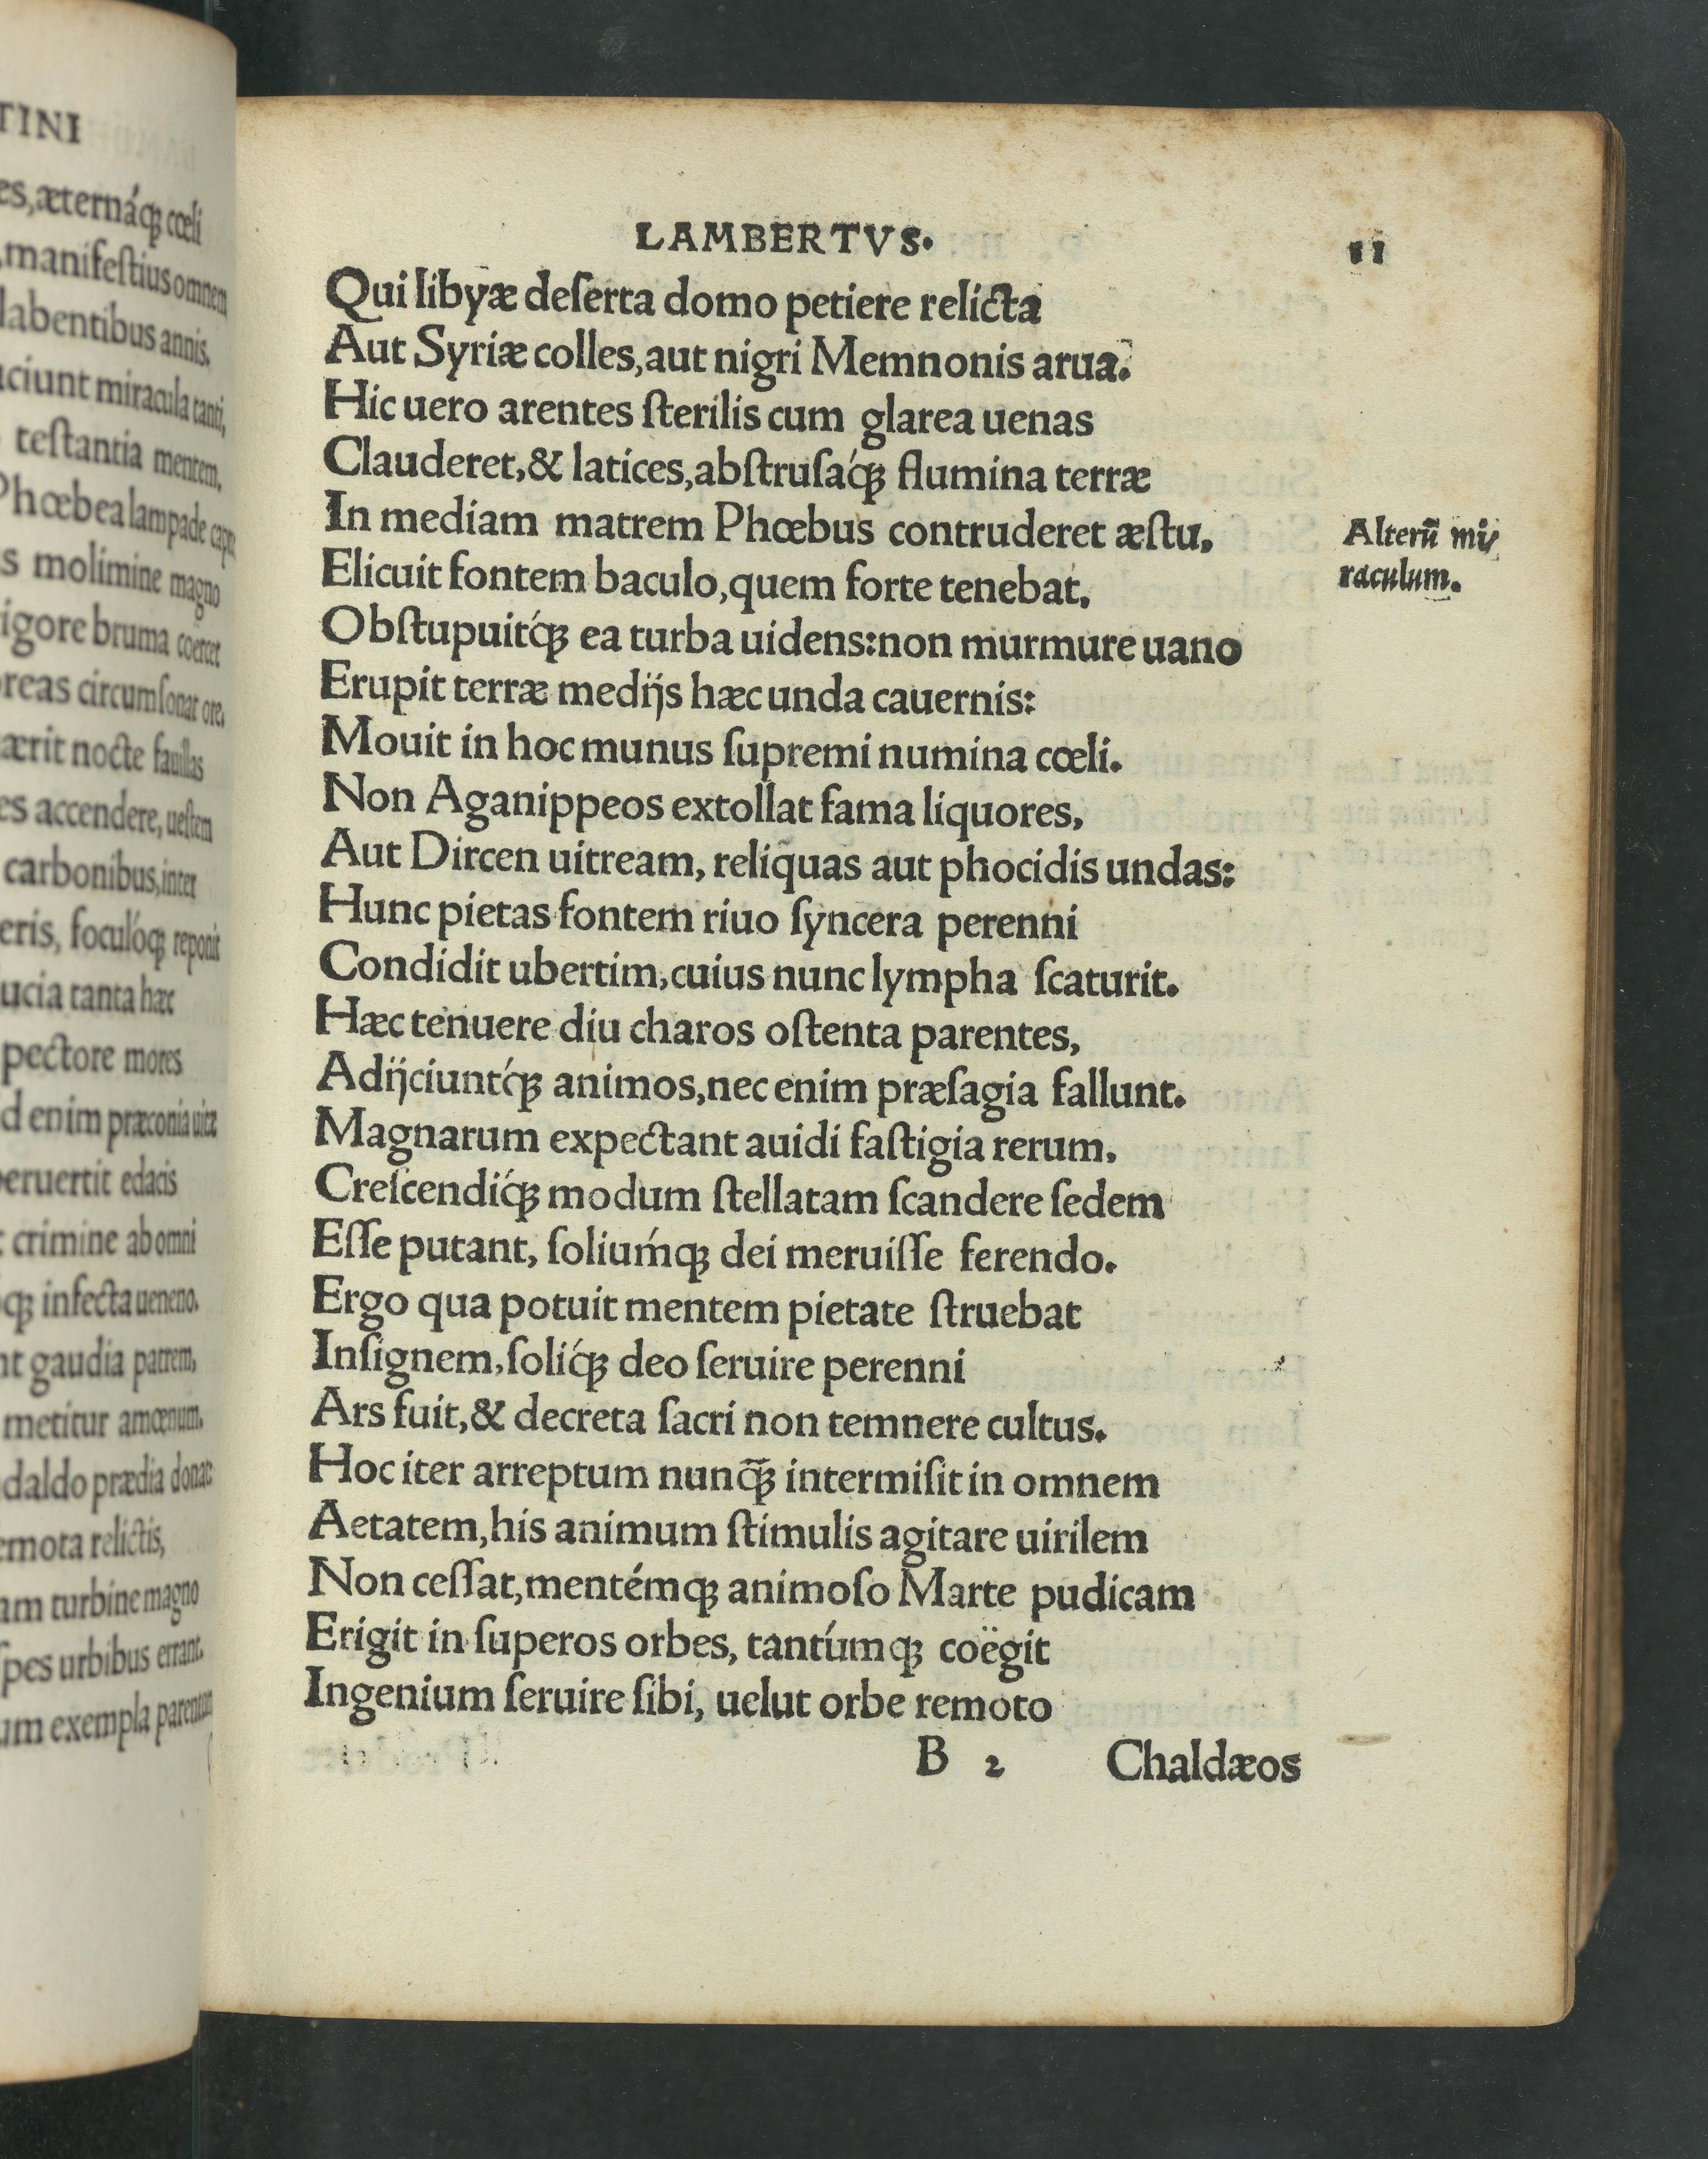 TINI
es, æternáꝗ cœli
manifeſtius omnem
labentibus annis.
ciunt miracula tanti,
teſtantia mentem,
Phœbea lampade
s molimine magno
igore bruma coercet
reas circumſonat ore,
ærit nocte fauillas
es accendere, ueſtem
carbonibus, inter
eris, foculóꝗ reponit
ucia tanta hæc
pectore mores
d enim præconia uitæ
eruertit edacis
crimine ab omni
ꝗ infecta ueneno.
nt gaudia patrem,
metitur amœnum.
daldo prædia donat
emota relictis,
am turbine magno
ſpes urbibus errant.
um exempla parentum
LAMBERTVS. 11
Qui libyæ deſerta domo petiere relicta
Aut Syriæ colles, aut nigri Memnonis arua.
Hic uero arentes ſterilis cum glarea uenas
Clauderet, & latices, abſtruſáꝗ flumina terræ
In mediam matrem Phœbus contruderet æſtu,
Alterũ mi-
raculum.
Elicuit fontem baculo, quem forte tenebat,
Obſtupuitꝗ́ ea turba uidens: non murmure uano
Erupit terræ medijs hæc unda cauernis:
Mouit in hoc munus ſupremi numina cœli.
Non Aganippeos extollat fama liquores,
Aut Dircen uitream, reliquas aut phocidis undas:
Hunc pietas fontem riuo ſyncera perenni
Condidit ubertim, cuius nunc lympha ſcaturit.
Hæc tenuere diu charos oſtenta parentes,
Adijciuntꝗ́ animos, nec enim præſagia fallunt.
Magnarum expectant auidi faſtigia rerum,
Creſcendiꝗ́ modum ſtellatam ſcandere ſedem
Eſſe putant, ſoliumꝗ́ dei meruiſſe ferendo.
Ergo qua potuit mentem pietate ſtruebat
Inſignem, ſoliꝗ́ deo ſeruire perenni
Ars fuit, & decreta ſacri non temnere cultus.
Hoc iter arreptum nunꝗ̃ intermiſit in omnem
Aetatem, his animum ſtimulis agitare uirilem
Non ceſſat, mentémꝗ animoſo Marte pudicam
Erigit in ſuperos orbes, tantúmꝗ coëgit
Ingenium ſeruire ſibi, uelut orbe remoto
B 2 Chaldæos